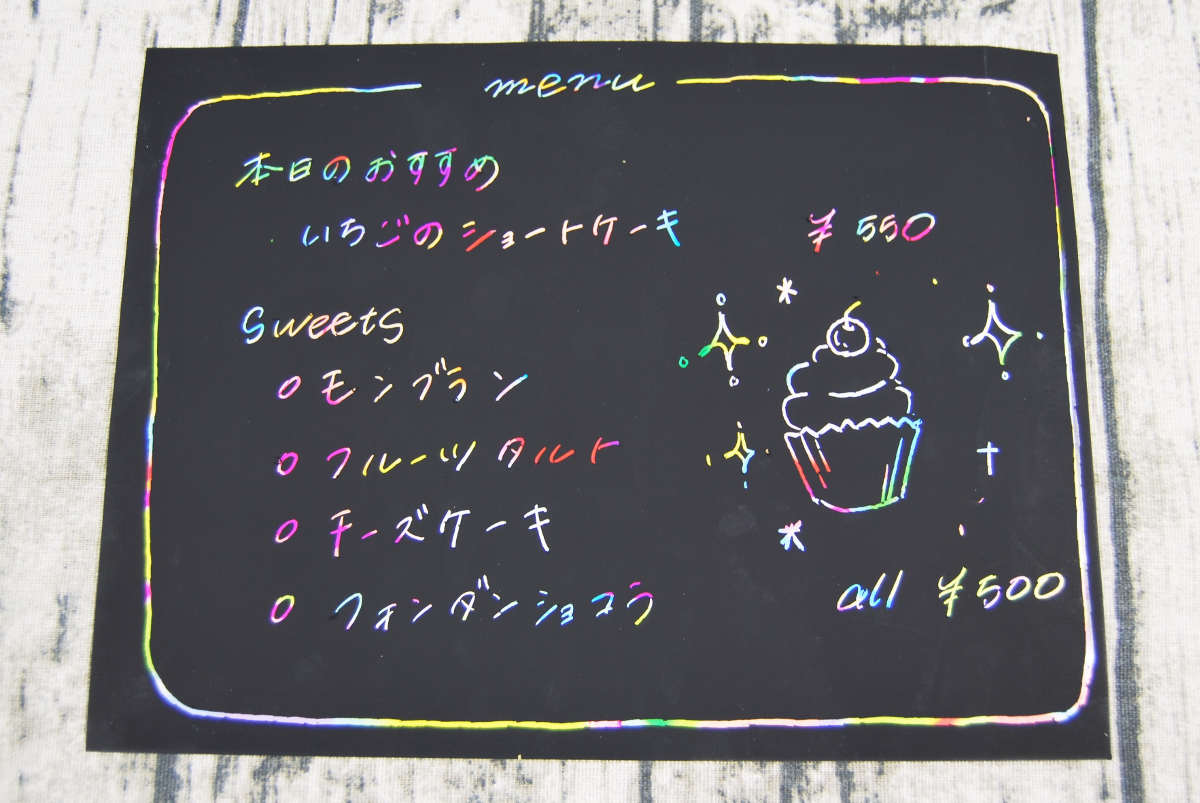 menu
本日のおすすめ
いちごのショートケーキ ¥550
Sweets
○モンブラン
○フルーツタルト
○チーズケーキ
○フォンダンショコラ
all ¥500